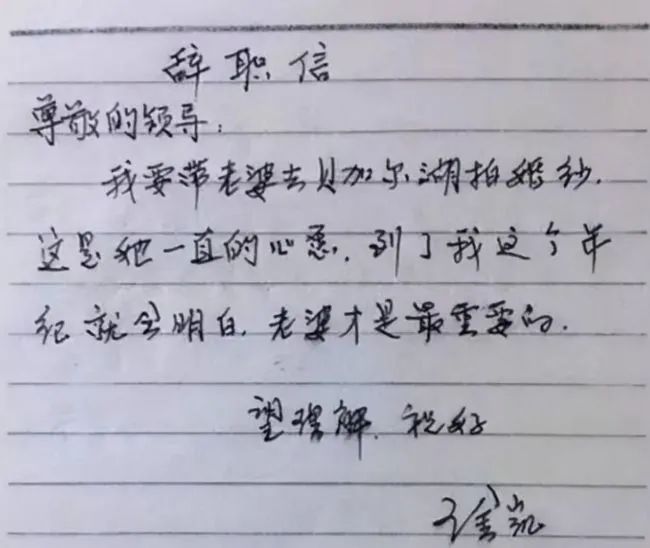 辞职信
尊敬的领导：
我要带老婆去贝加尔湖拍婚纱.
这是她一直的心愿.到了我这个年
纪就会明白.老婆才是最重要的.
望理解.祝好
徐凯